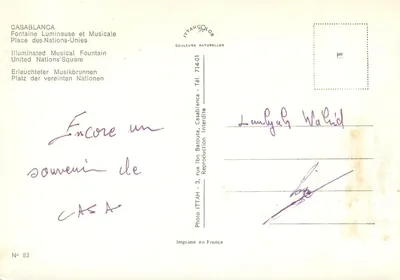 CASABLANCA
Fontaine Lumineuse et Musicale
Place des Nations-Unies
Illuminated Musical Fountain
United Nations'Square
Erleuchteter Musikbrunnen
Platz der vereinten Nationen
Encore un
souvenir de
CASA
N° 83
ITTAH COLOR
COULEURS NATURELLES
Photo ITTAH - 3, rue Ibn Batouta, Casablanca - Tél. 714-01
Reproduction Interdite
Walid
Imprimé en France